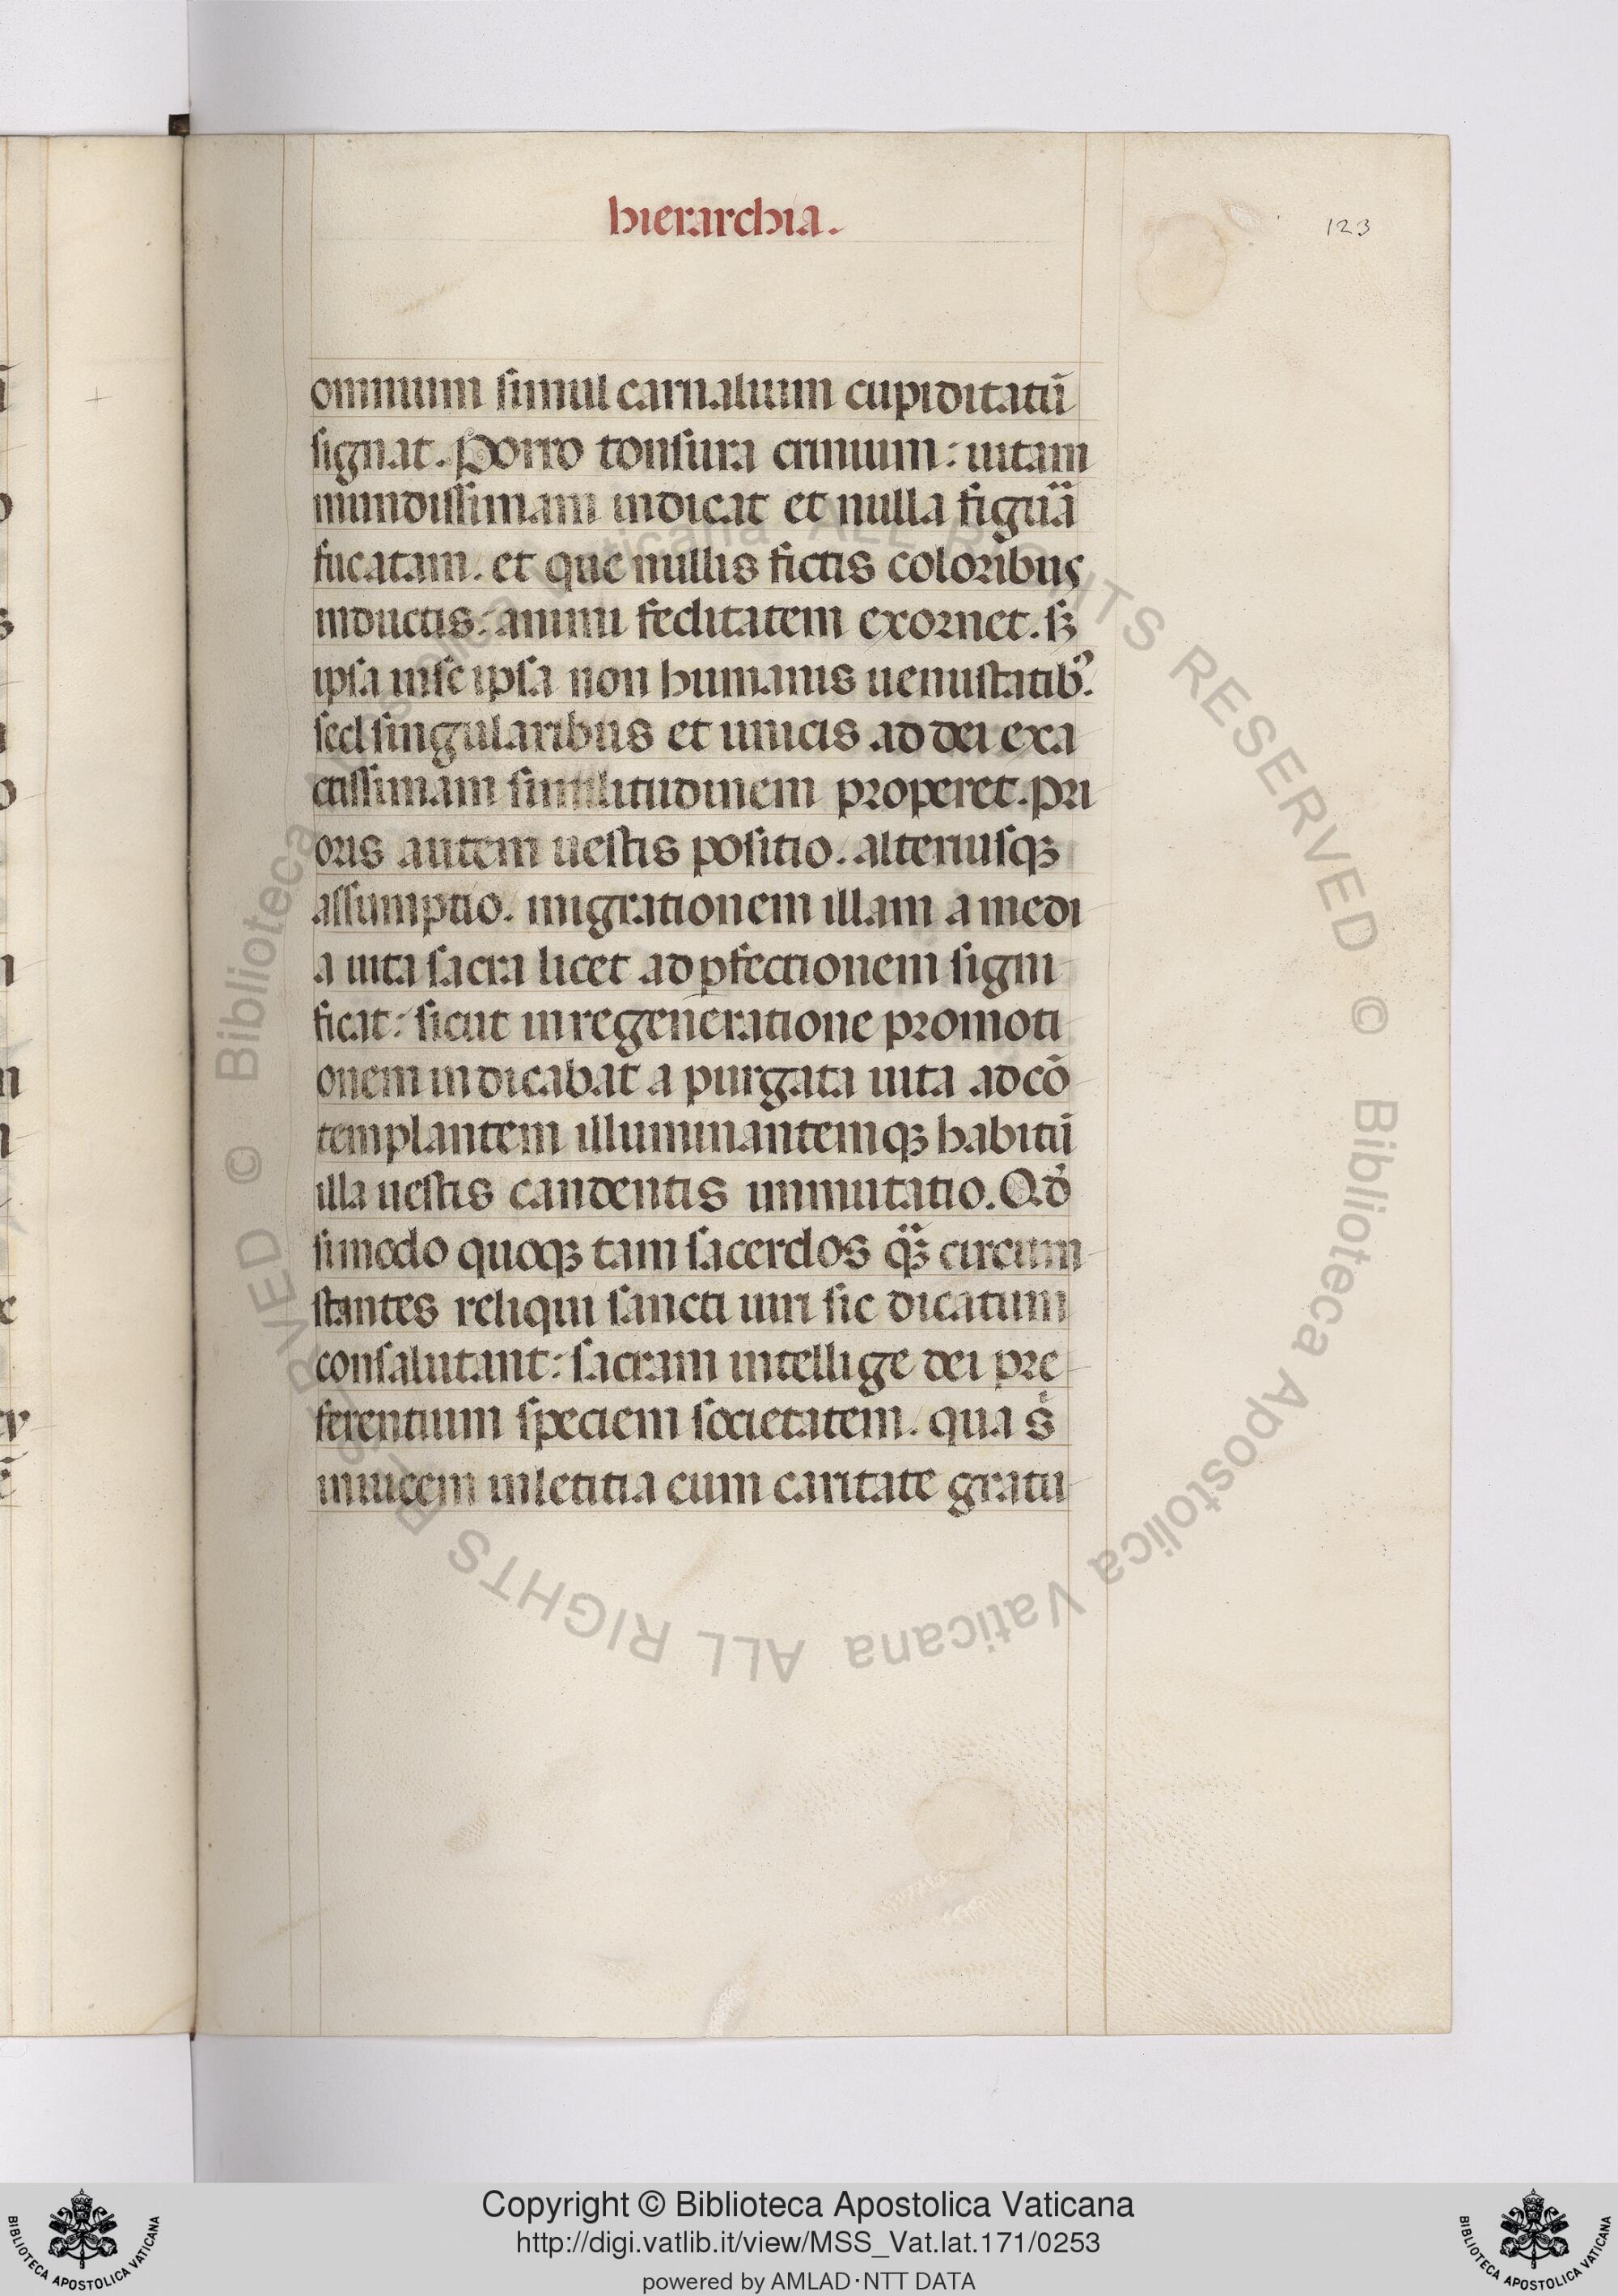 hierarchia.
123
omnium simul carnalium cupiditatū
signat. Porro tonsura crinium: uitam
mundissimam indicat et nulla figurā
fucatam. et que nullis fictis coloribus
inductis: animi feditatem exornet. sꝫ
ipsa in se ipsa non humanis uenustatibꝰ.
sed singularibus et unicis ad dei exa
ctissimam similitudinem properet. pri
oris autem uestis positio. alteriusqꝫ
assumptio. migrationem illam a medi
a uita sacra licet ad ꝑfectionem signi
ficat: sicut in regeneratione promoti
onem indicabat a purgata uita ad cō
templantem illuminantemqꝫ habitū
illa uestis candentis immutatio. Qđ
si modo quoqꝫ tam sacerdos qꝫ̄ circum
stantes reliqui sancti uiri sic dicatum
consalutant: sacram intellige dei pre
ferentium speciem societatem. qua sͥ
inuicem in letitia cum caritate gratu
Copyright © Biblioteca Apostolica Vaticana
http://digi.vatlib.it/view/MSS_Vat.lat.171/0253
powered by AMLAD·NTT DATA
BIBLIOTECA APOSTOLICA VATICANA
BIBLIOTECA APOSTOLICA VATICANA
© Biblioteca Apostolica Vaticana ALL RIGHTS RESERVED © Biblioteca Apostolica Vaticana ALL RIGHTS RESERVED